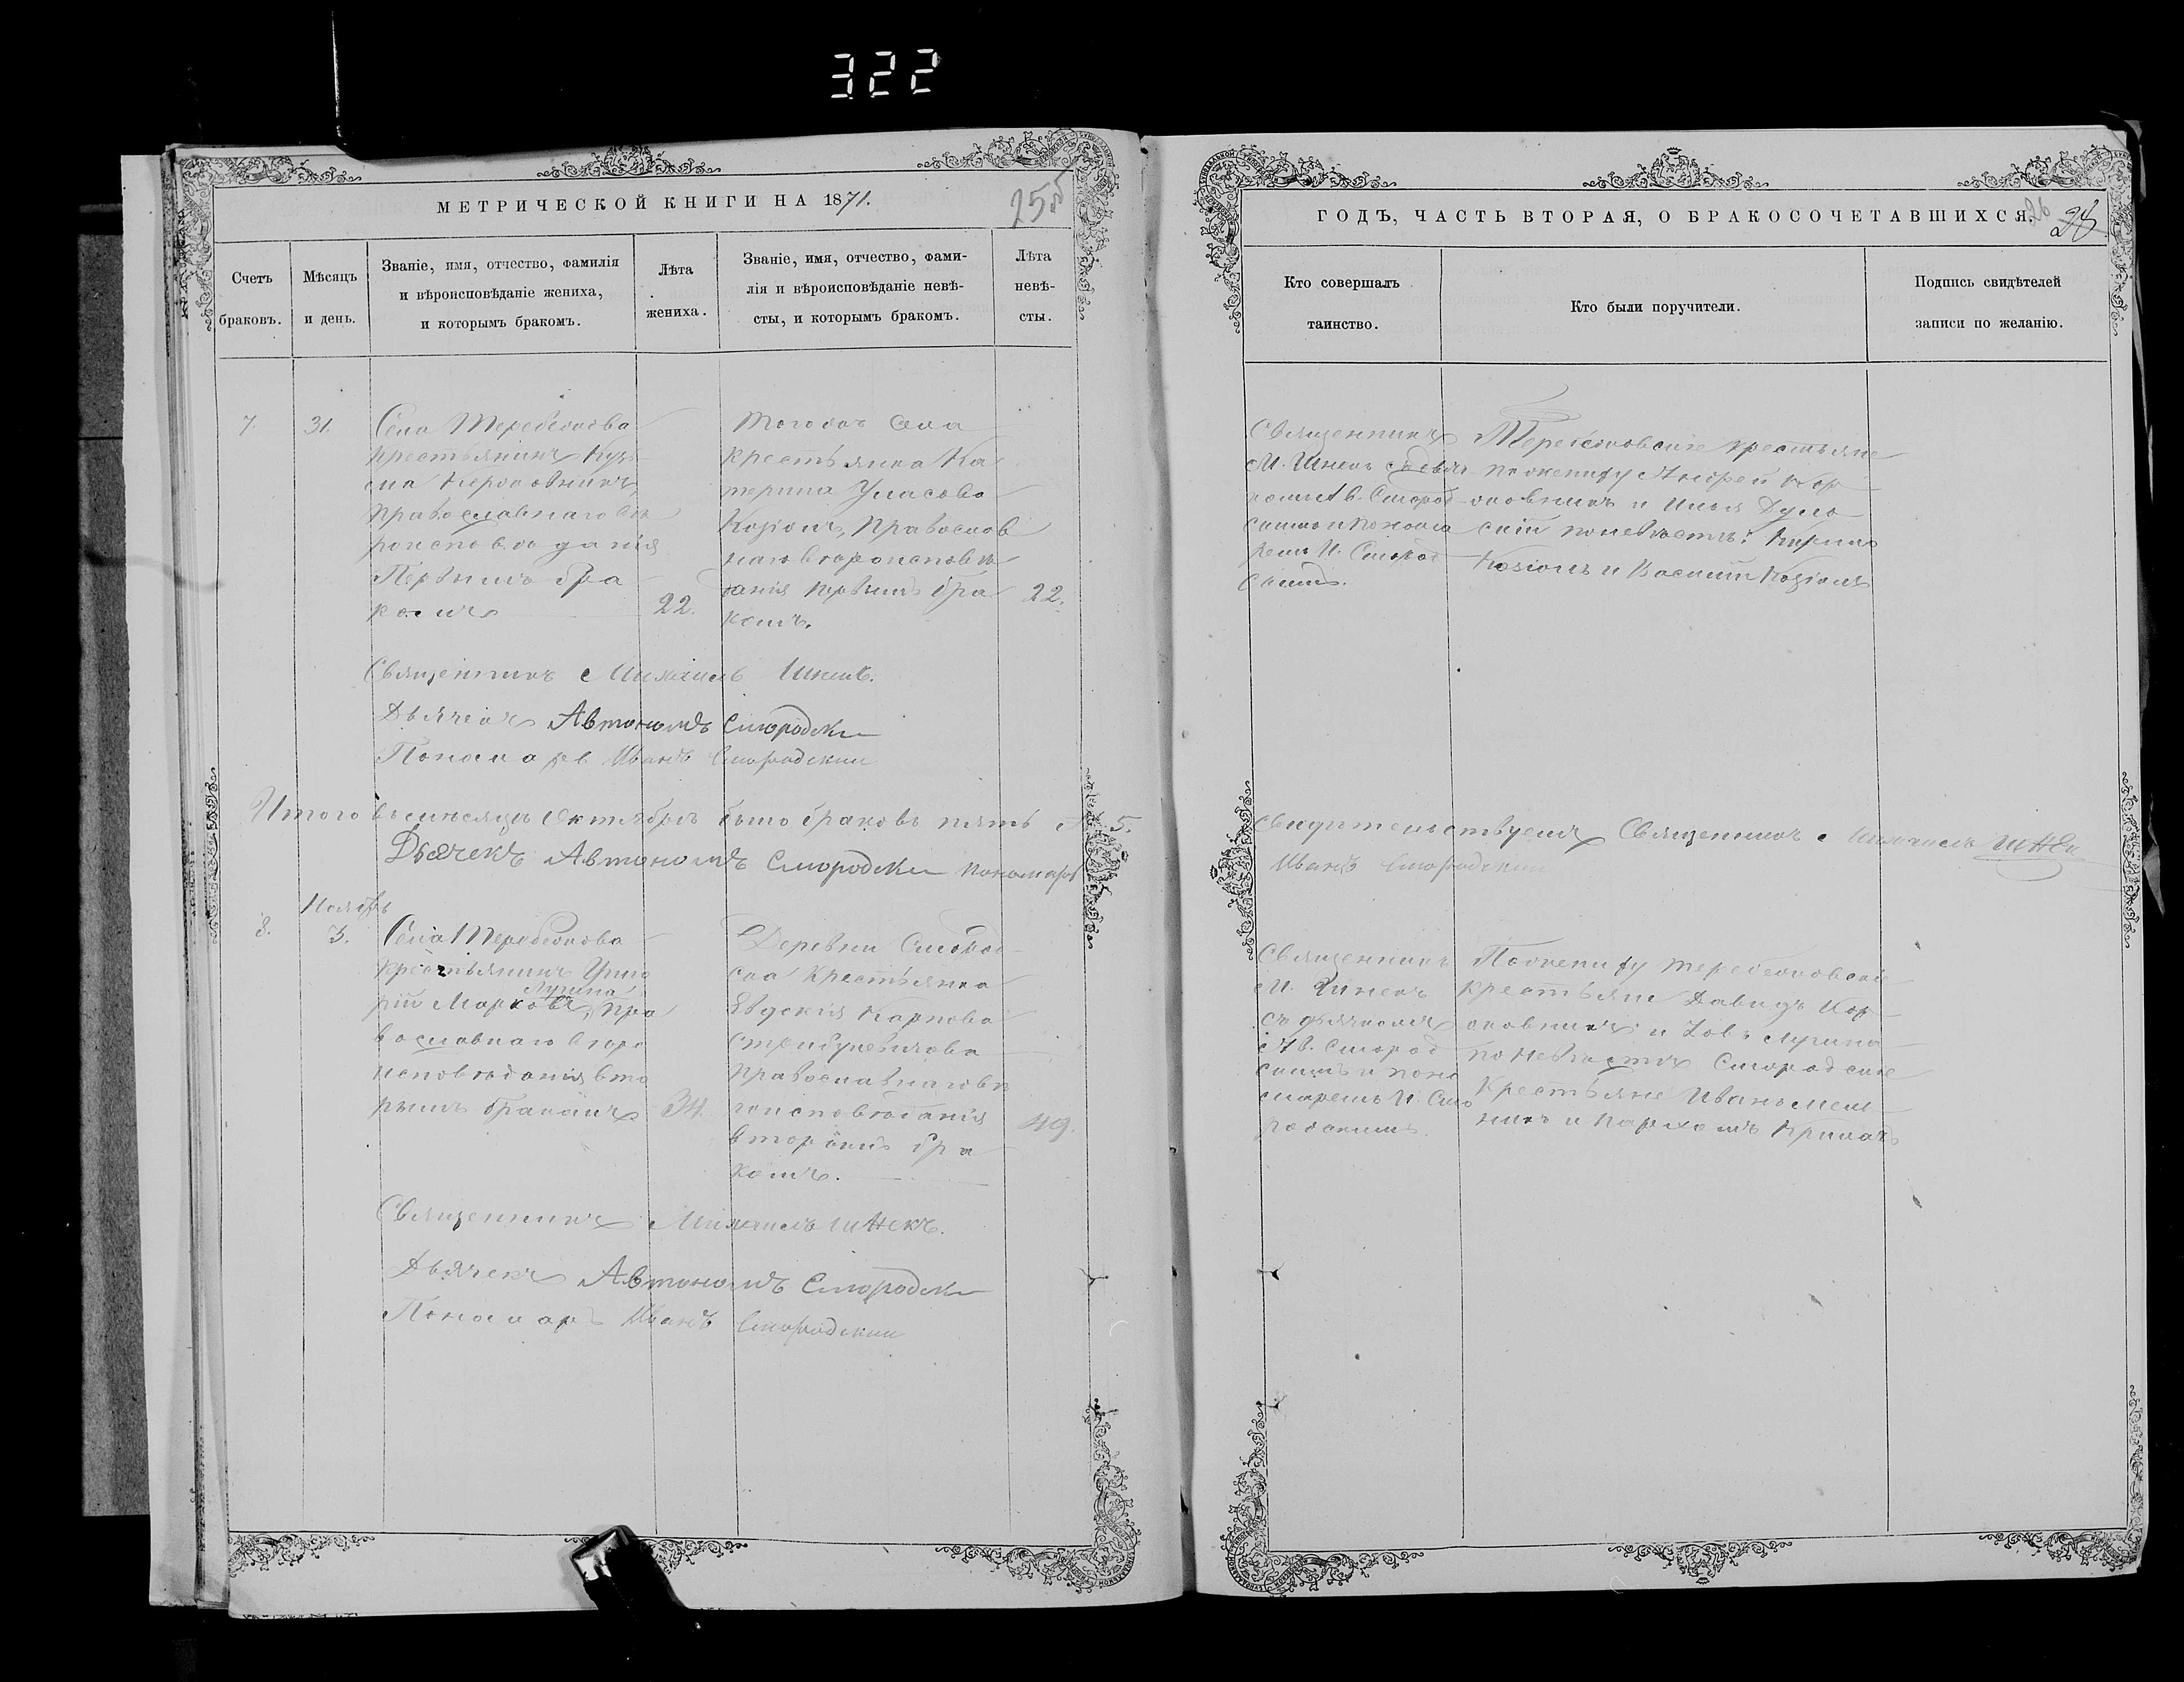 322
МЕТРИЧЕСКОЙ КНИГИ НА 1871.
25об
Счетъ браковъ.
Мѣсяцъ и день.
Званіе, имя, отчество, фамилія
и вѣроисповѣданіе жениха,
и которымъ бракомъ.
Лѣта
жениха.
Званіе, имя, отчество, фами-
лія и вѣроисповѣданіе невѣ-
сты, и которымъ бракомъ.
Лѣта
невѣ-
сты.
7.
31.
Села Теребежова
крестьянинъ Кузь
ма
Православнаго вѣ
роисповѣданія
Первымъ бра
комъ
22.
Тогожъ села
крестьянка Ка
терина Уласова
Козіолъ, Православ
наго вѣроисповѣ
данія первымъ бра
комъ.
22.
Священникъ Михаилъ
Дьячекъ Автономъ Смородски
Пономарь Иванъ Смородский
Итого въ мѣсяцѣ Октябрѣ было браковъ пять 5.
Дьячекъ Автономъ Смородски пономарь
Ноябрь
8.
3.
Села Теребежова
крестьянинъ Григо
Лугина
рій Марковъ, пра
вославнаго вѣро
исповѣданія вто
рымъ бракомъ
34.
Деревни Смород
ска крестьянка
Евдокія Карпова
Православнаго вѣ
роисповѣданія
вторымъ бра
комъ.
49.
Священникъ Михаилъ Шнекъ.
Дьячекъ Автономъ Смородски
Пономарь Иванъ Смородский
ГОДЪ, ЧАСТЬ ВТОРАЯ, О БРАКОСОЧЕТАВШИХСЯ.
26
Кто совершалъ
таинство.
Кто были поручители.
Подпись свидѣтелей
записи по желанію.
Священникъ
М. Шнекъ съ дьяч
комъ Ав. Смород
скимъ и понома
ремъ И. Смород
скимъ.
Теребежовскіе крестьяне
по жениху Андрей Кор
и
скій по невѣстѣ:
Козіолъ и Василій Козіолъ
Свидѣтельствуемъ Священникъ Михаилъ Шнекъ
Иванъ Смородский
Священникъ
М. Шнекъ
съ дьячкомъ
Ав. Смород
скимъ и поно
маремъ И. Смо
родскимъ
По жениху теребежовскіе
крестьяне Давидъ Кор
и Лугина
по невѣстѣ Смородскіе
крестьяне Иванъ Мель
никъ и